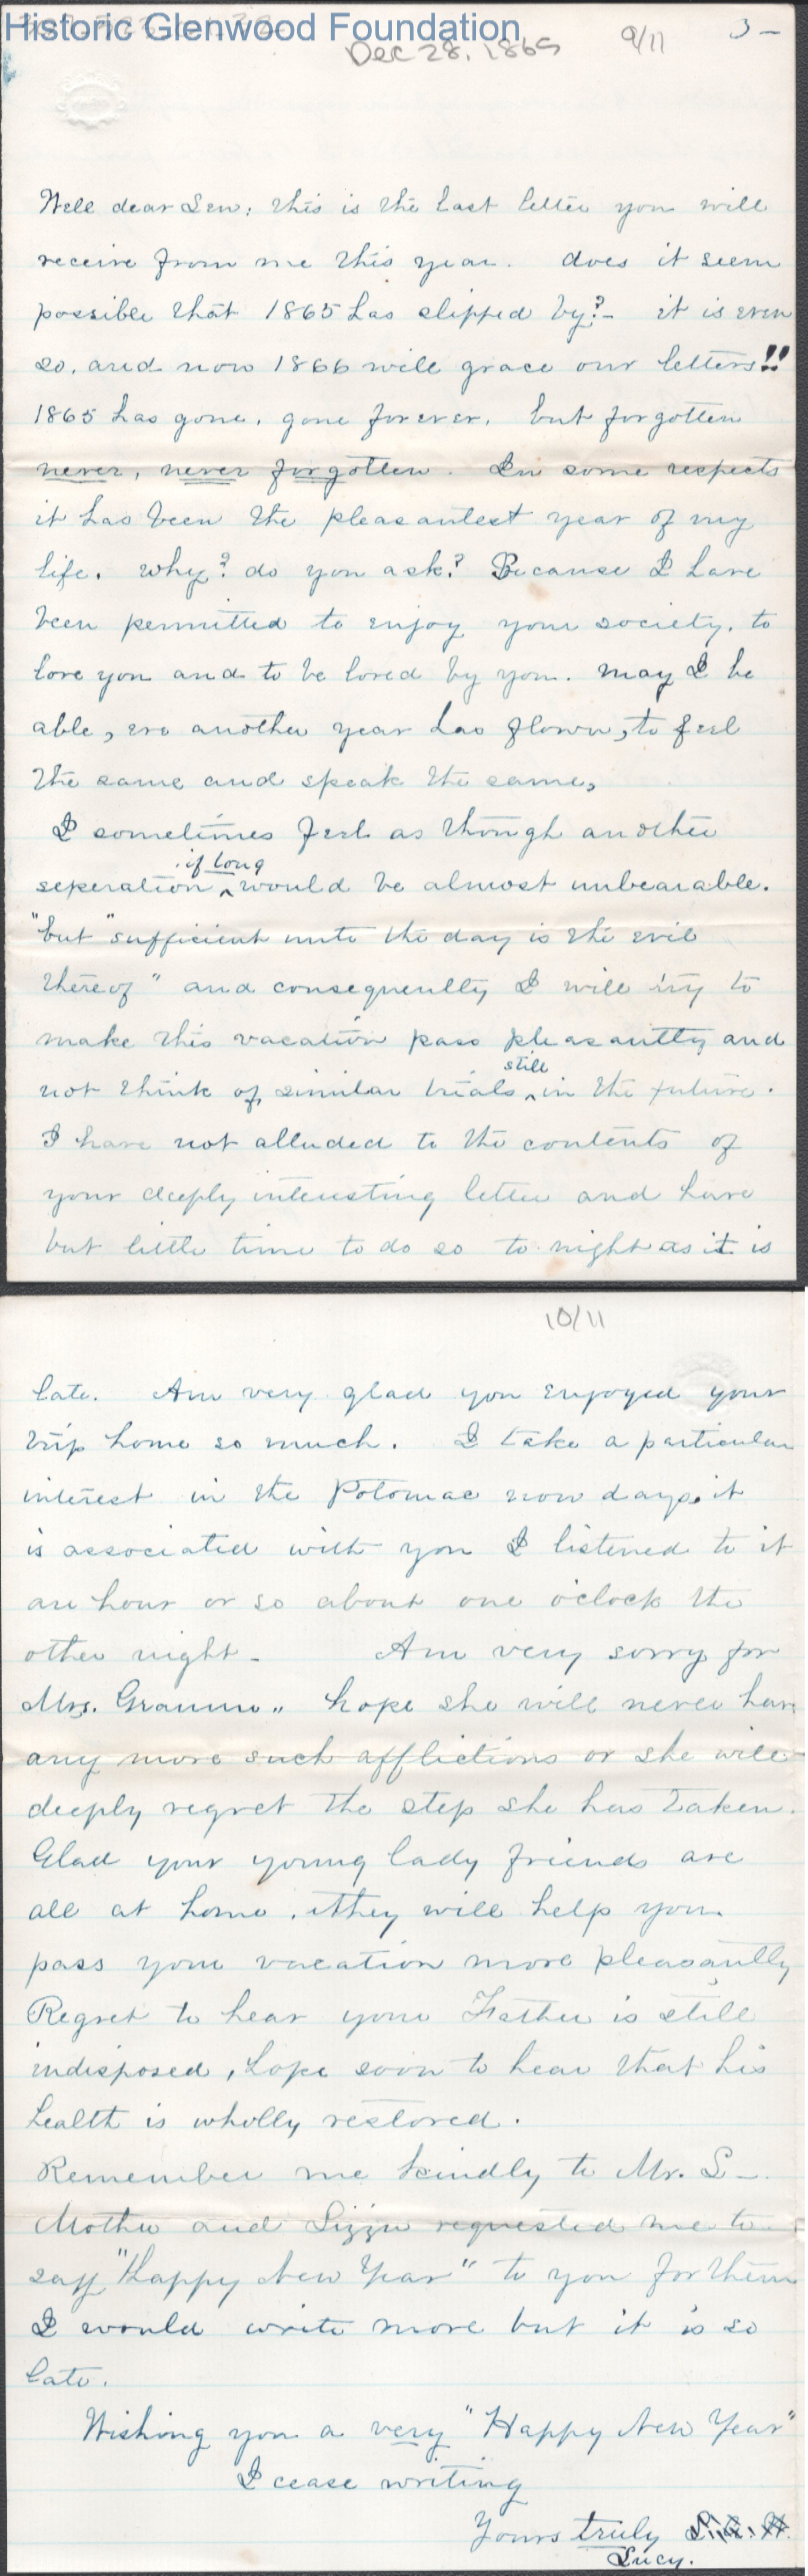 Historic Glenwood Foundation
Dec 28, 1865
9/11
3-
Well dear Lew; this is the last letter you will
receive from me this year. does it seem
possible that 1865 has slipped by?- it is even
so, and now 1866 will grace our letters!!
1865 has gone, gone forever, but forgotten
never, never forgotten. In some respects
it has been the pleasantest year of my
life. Why? do you ask? Because I have
been permitted to enjoy your society, to
love you and to be loved by you. May I be
able, ere another year has flown, to feel
the same and speak the same,
I sometimes feel as though another
if long
seperation ^ would be almost unbearable.
"but "sufficient unto the day is the evil
thereof" and consequently I will try to
make this vacation pass pleasantly and
still
not think of similar trials ^ in the future.
I have not alluded to the contents of
your deeply interesting letter and have
but little time to do so to-night as it is
10/11
late. Am very glad you enjoyed your
trip home so much. I take a particular
interest in the Potomac now days, it
is associated with you I listened to it
an hour or so about one o'clock the
other night - Am very sorry for
Mrs. hope she will never have
any more such afflictions or she will
deeply regret the step she has taken.
Glad your young lady friends are
all at home, they will help you
pass your vacation more pleasantly
Regret to hear your Father is still
indisposed, hope soon to hear that his
health is wholly restored.
Remember me kindly to Mr. S-
Mother and Lizzie requested me to
say "Happy New Year" to you for them
I would write more but it is so
late.
Wishing you a very "Happy New Year"
I cease writing
Yours truly
Lucy.